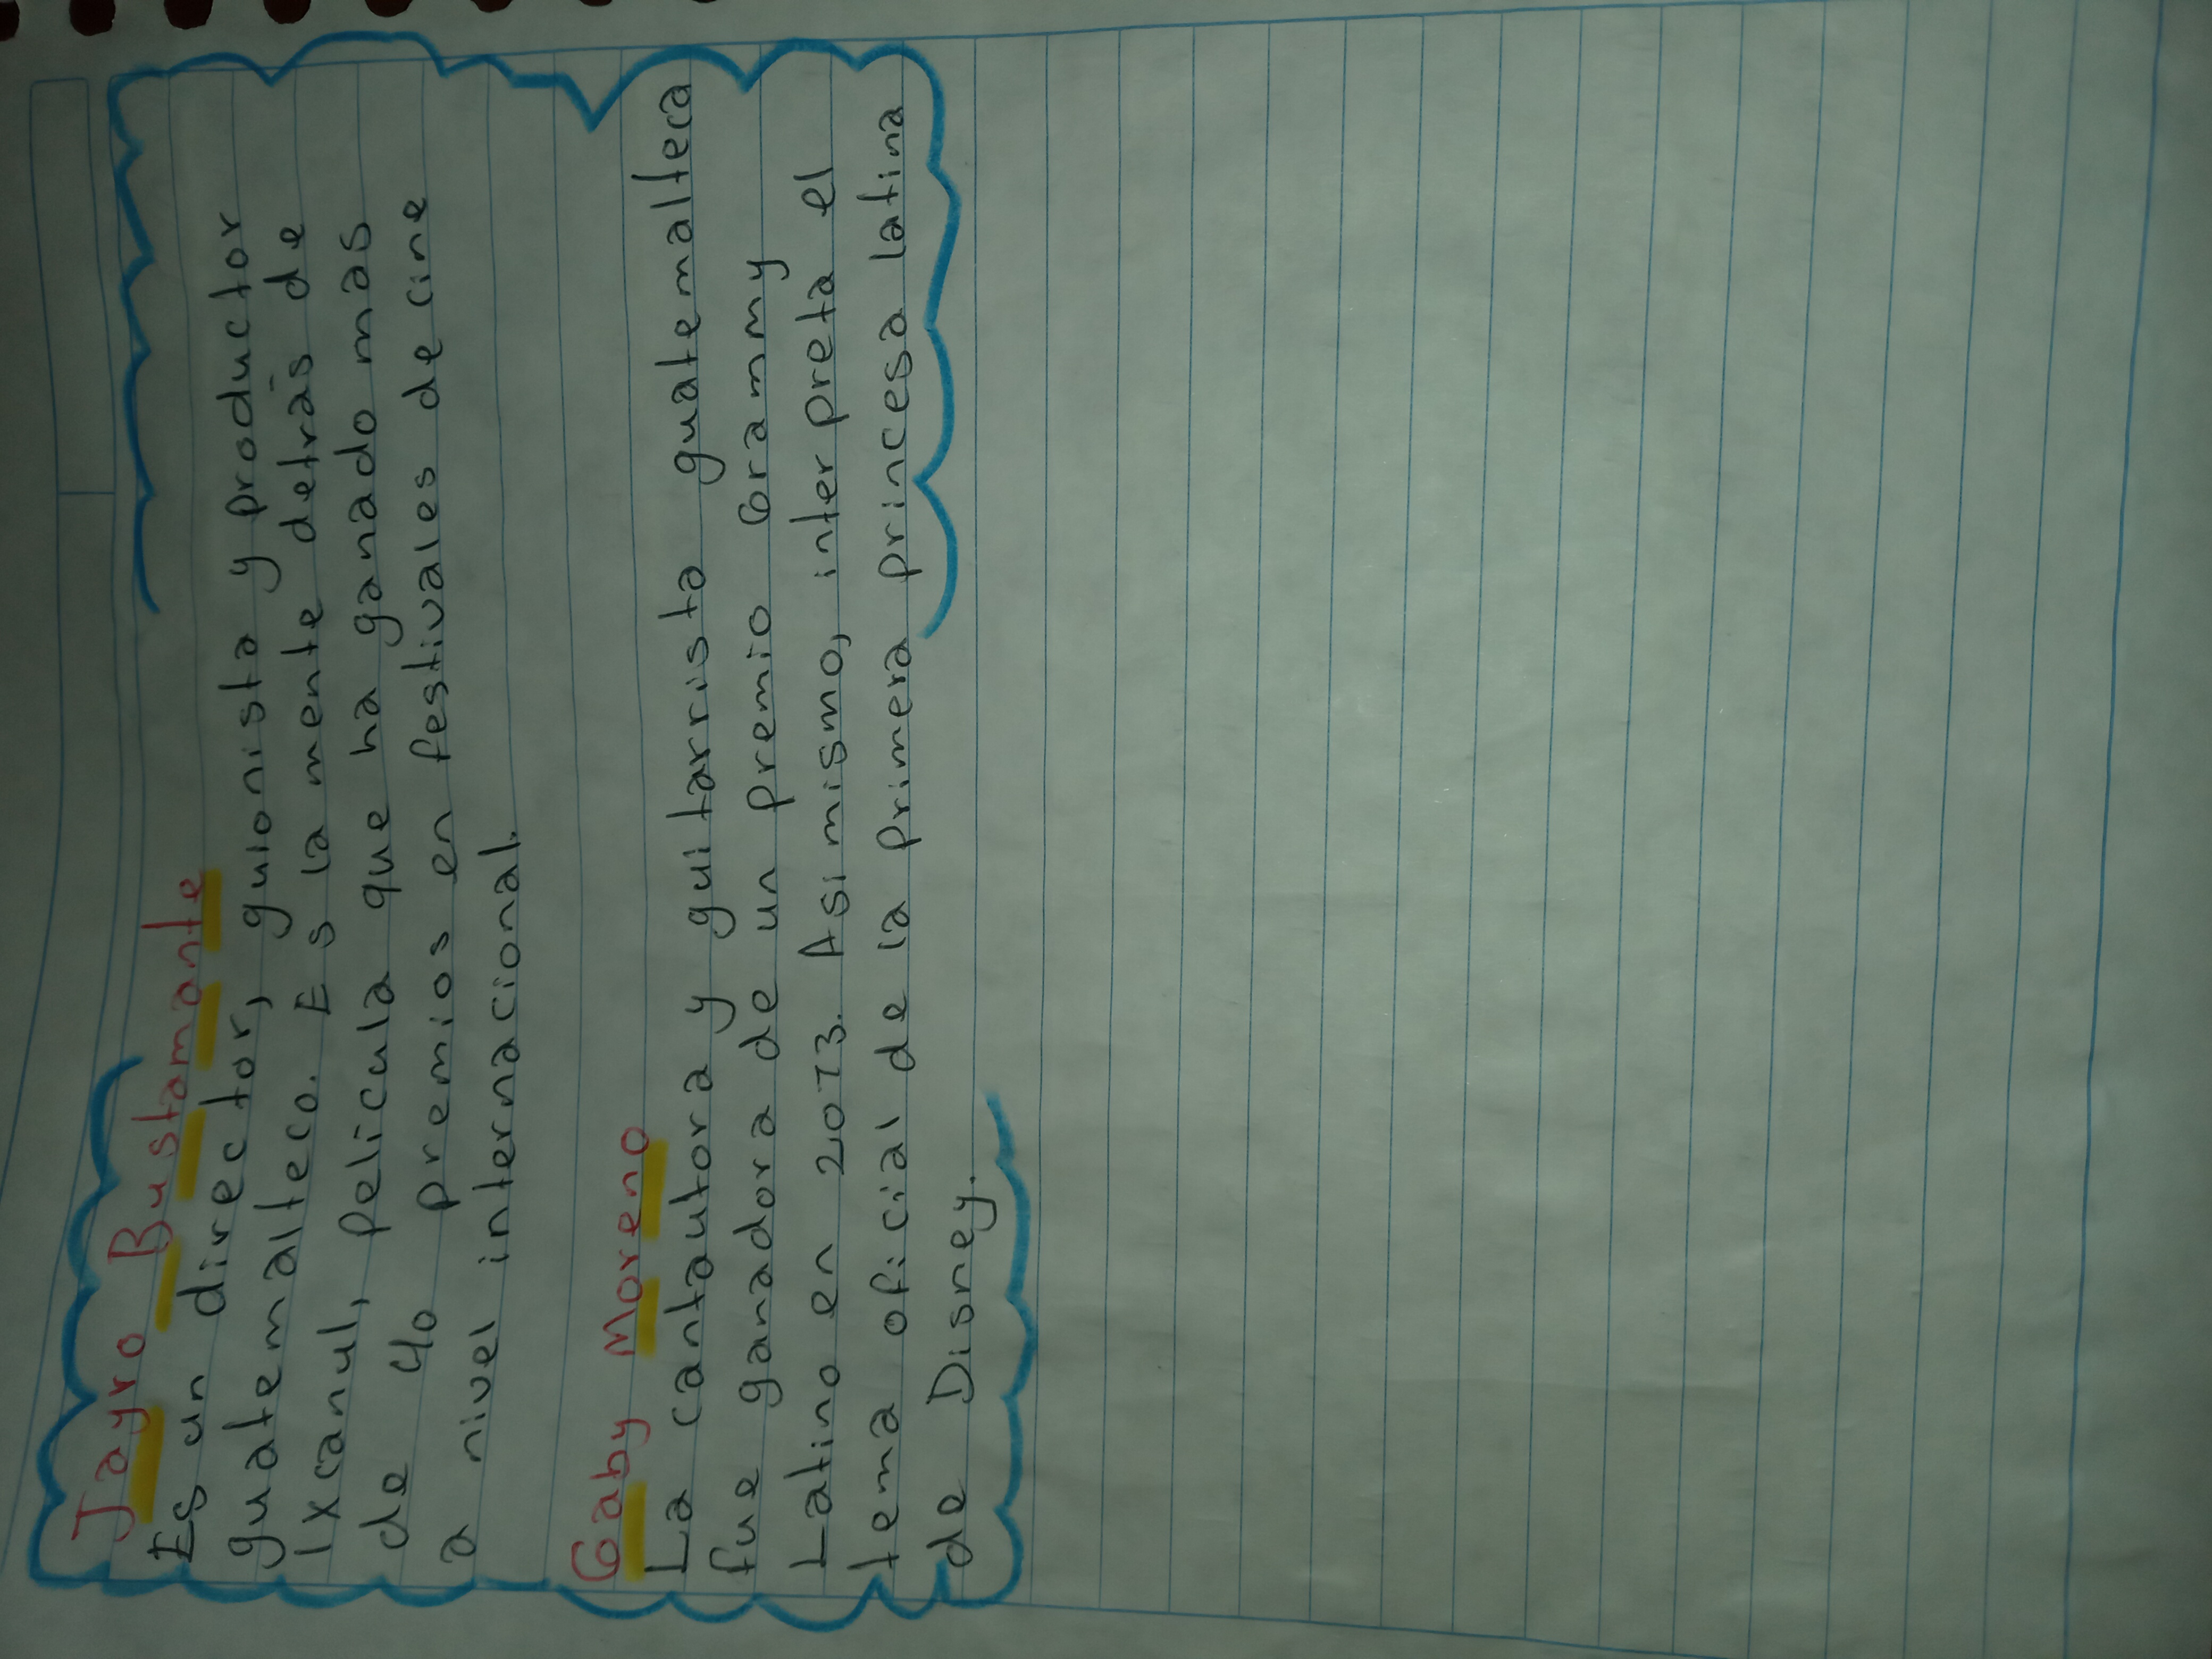 Jayro Bustamante
Es un director, guionista y productor
guatemalteco. Es la mente detrás de
Ixcanul, película que ha ganado mas
de 40 premios en festivales de cine
a nivel internacional.
Gaby Moreno
La cantautora y guitarrista guatemalteca
fue ganadora de un premio Grammy
Latino en 2013. Asi mismo, interpreta el
tema oficial de la primera princesa latina
de Disney.